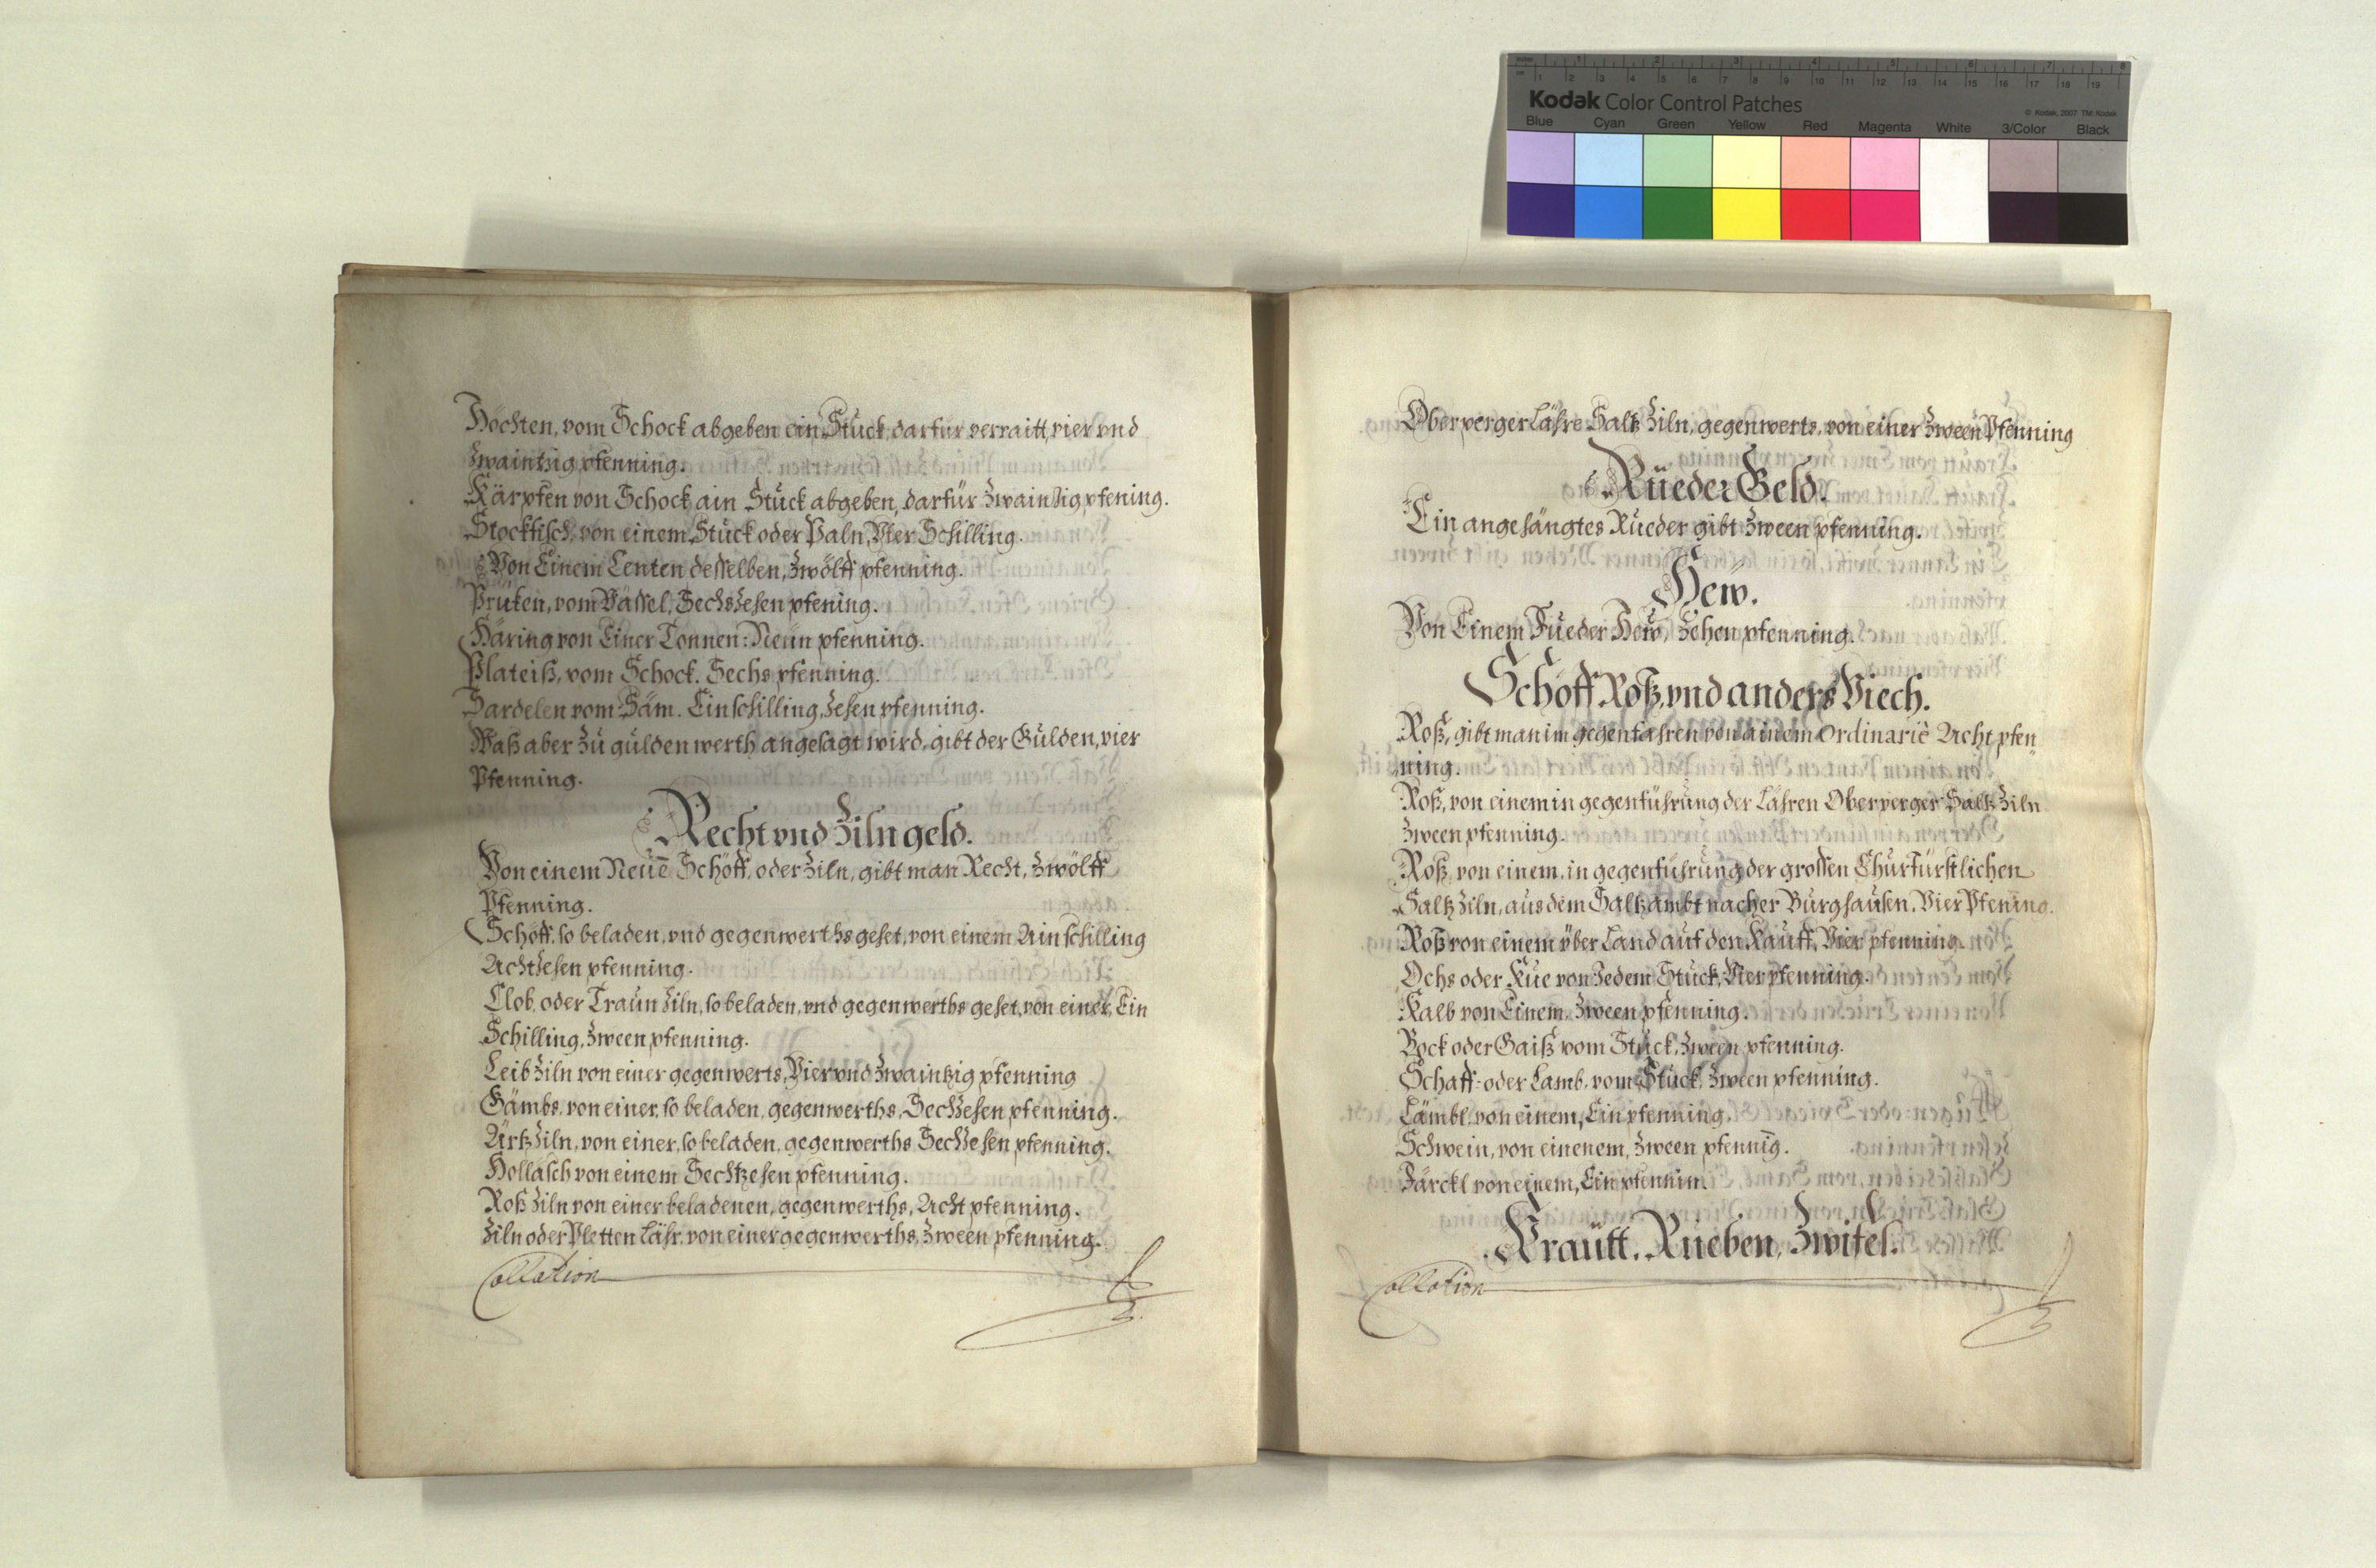 Höchten, vom Schock abgeben ein Stuck, darfür verraitt, vier vnd
Zwaintzig pfenning.
Kärpfen von Schock ain Stuck abgeben, darfür Zwainzig pfening.
Stockfisch, von einem Stuck oder Paln, Vier Schilling.
Von Einem Centen desselben, Zwölff pfenning.
Prüken, vom Vässel, Sechszehen pfening.
Häring von Einer Tonnen: Neün pfenning.
Plateiß, vom Schock. Sechs pfenning.
Sardelen vom Säm. Ein schilling, zehen pfenning.
Waß aber Zu gulden werth angesagt wird, gibt der Gulden, vier
Pfenning.
Recht vnd Ziln geld.
Von einem Neuē Schöff, oder Ziln, gibt man Recht, Zwölff
Pfenning.
Schöff, so beladen, vnd gegenwerths gehet, von einem Ain schilling
Achtzehen pfenning.
Clob, oder Traun Ziln, so beladen, vnd gegenwerths gehet, von einer, Ein
Schilling, Zween pfenning.
Leib Ziln von einer gegenwerts, Vier vnd Zwaintzig pfenning
Gämbs, von einer, so beladen, gegenwerths, Sechzehen pfenning.
Ärtz Ziln, von einer, so beladen, gegenwerths Sechzehen pfenning.
Hollasch von einem Sechtzehen pfenning.
Roß Ziln von einer beladenen, gegenwerths, Acht pfenning.
Ziln oder Pletten Lähr, von einer gegenwerths, Zween pfenning.
Collation
Oberperger Lähre Saltz Ziln, gegenwerts, von einer Zween Pfenning
Rüeder Geld.
Ein angehängtes Rueder gibt Zween pfenning.
Hew.
Von Einem Fueder Hew, Zehen pfenning.
Schöff, Roß, vnd anders Viech.
Roß, gibt man im gegenfahren von ainem Ordinarie Acht pfen
ning.
Roß, von einem in gegenführung der Lähren Oberperger Saltz Ziln
Zween pfenning.
Roß, von einem, in gegenführung der grossen Churfürstlichen
Saltz Ziln, aus dem Saltzambt nacher Burghausen, Vier Pfening.
Roß von einem über Land auf den Kauff, Vier pfenning.
Ochs oder Kue von Jedem Stuck, Vier pfenning.
Kalb von Einem Zween pfenning.
Bock oder Gaiß vom Stuck, Zween pfenning.
Schaff- oder Lamb, vom Stuck, Zween pfenning.
Lämbl, von einem, Ein pfenning.
Schwein, von einenem, Zween pfennig̅.
Järckl von einem, Ein pfennin.
Krautt, Rueben, Zwifel.
Collation